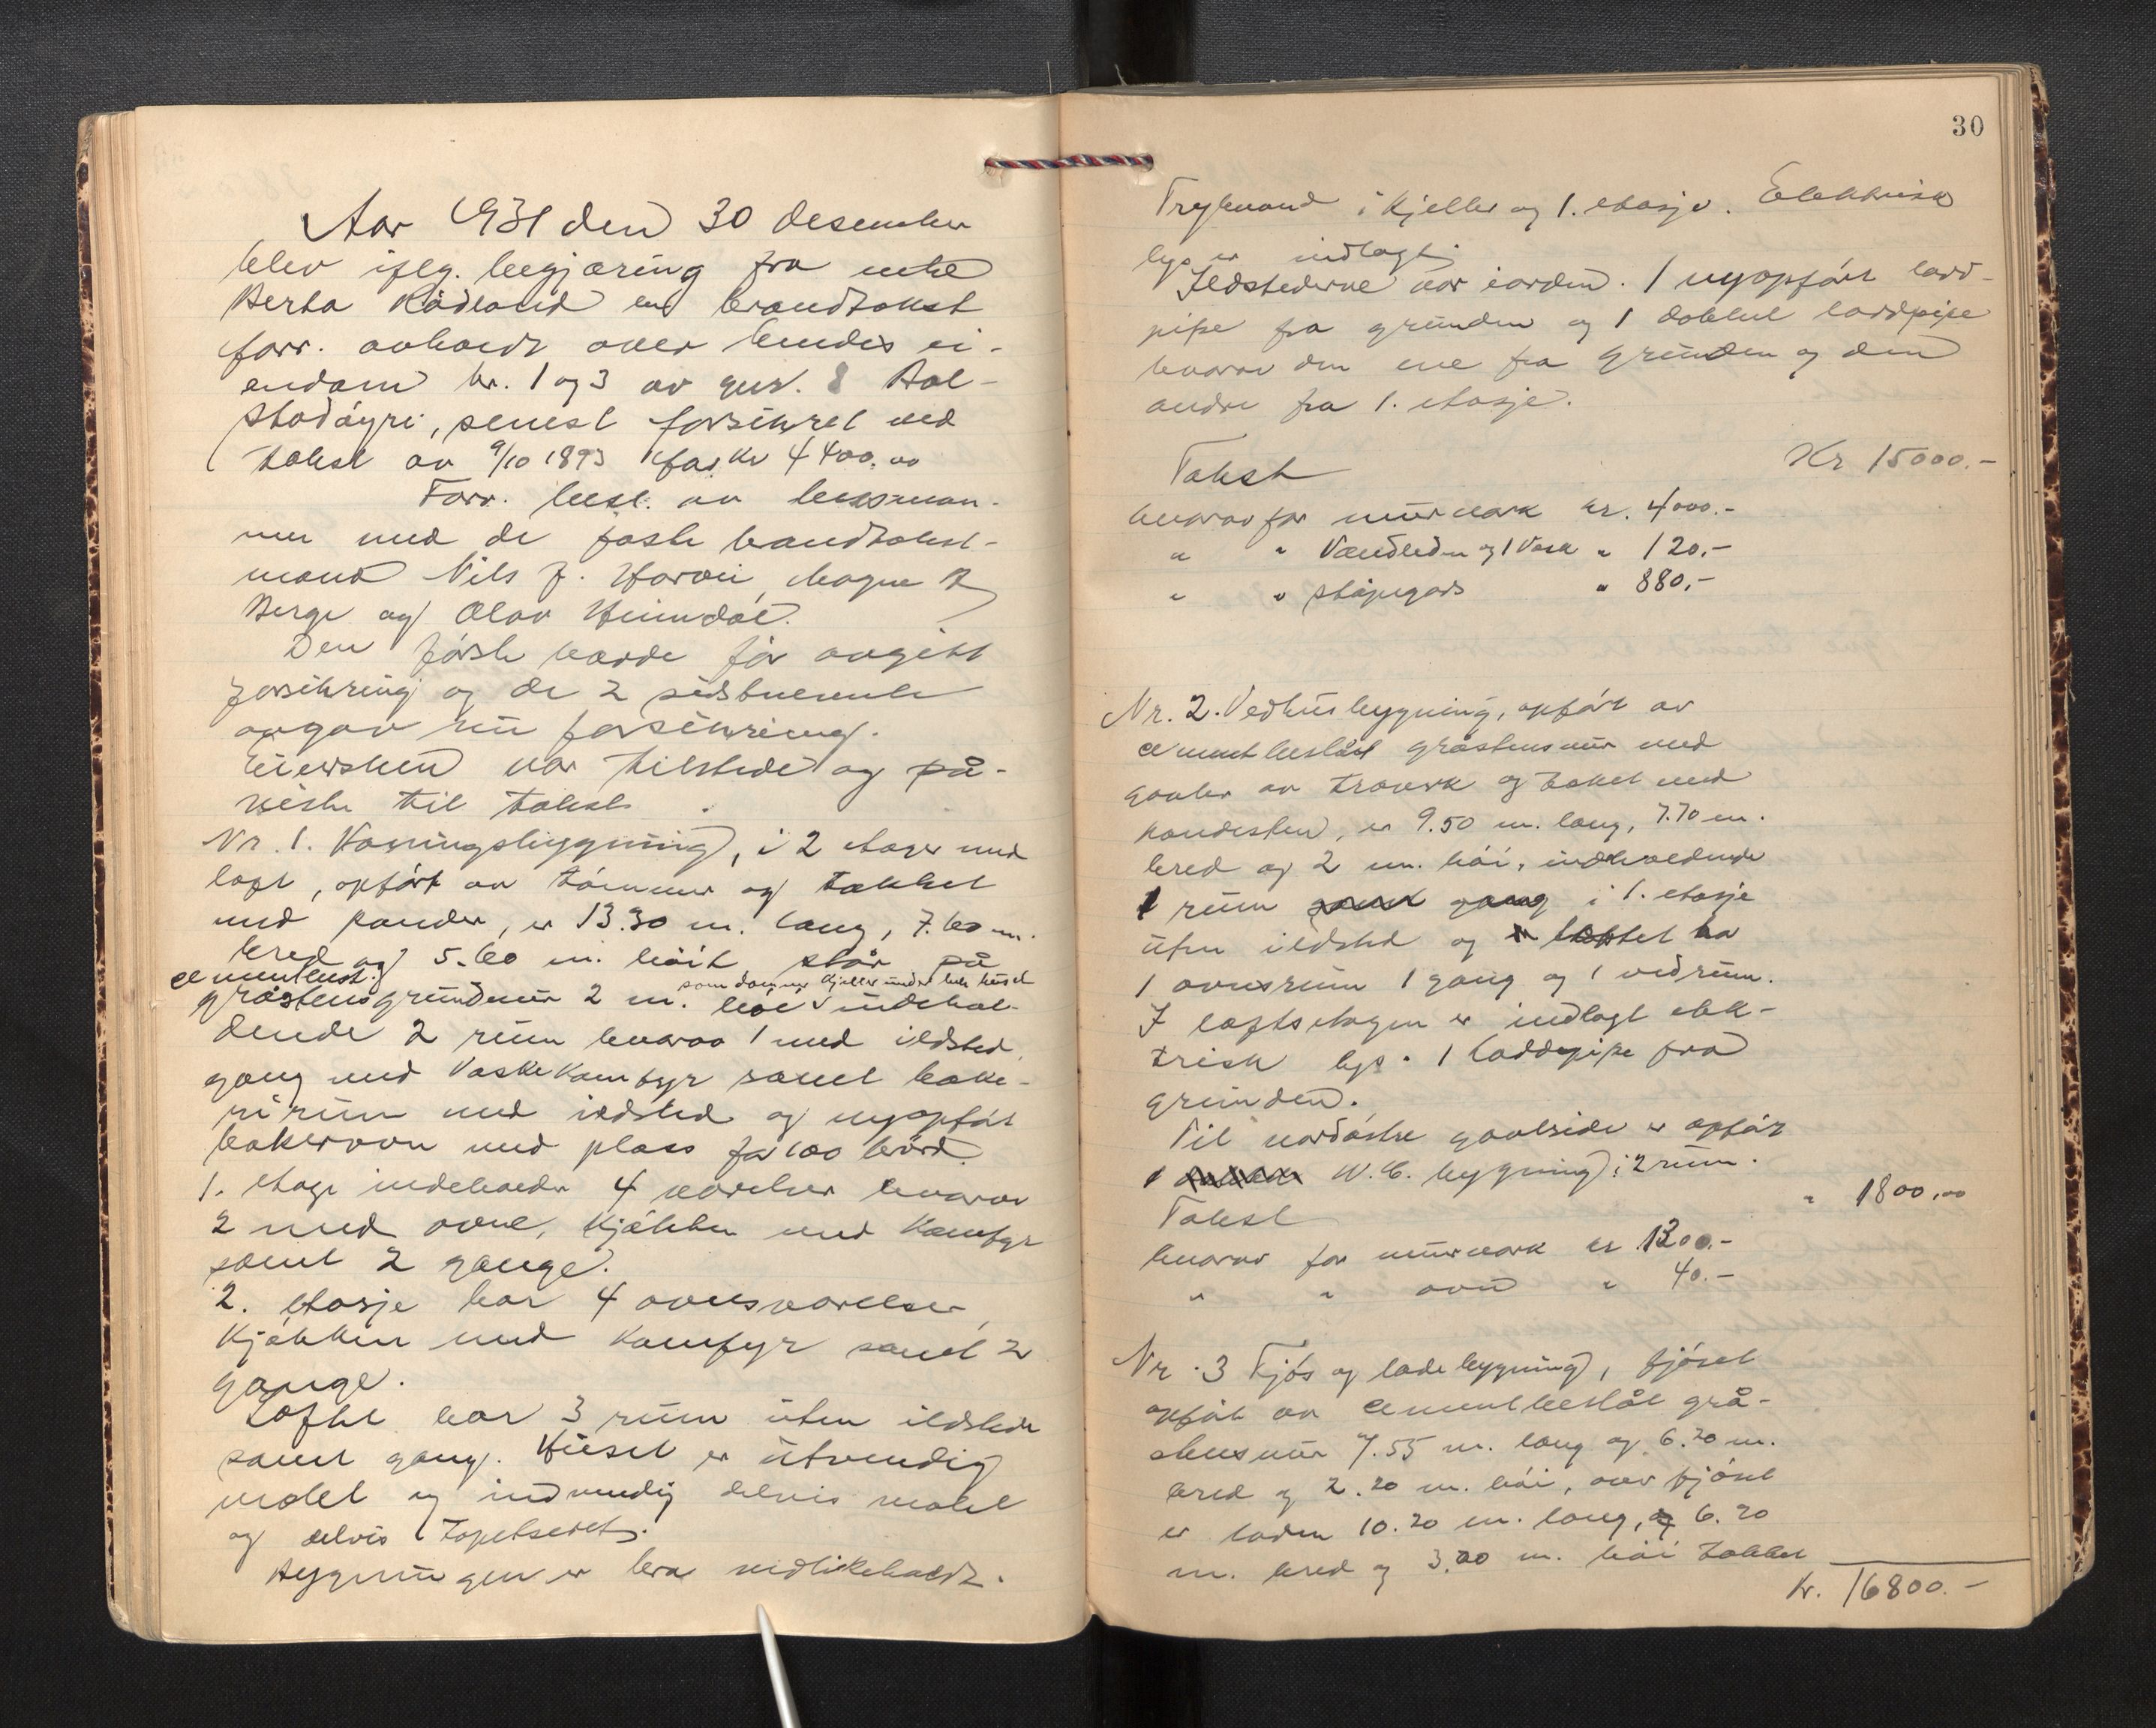 Aar 1931 den 30 desember
blev iflg. begjæring fra enke
Berta Rådland en brandtakst
forr. avholdt over hendes ei-
endom br. 1 og 3 av gnr. 8 Hol-
stadøyri, senest forsikret ved
takst av 9/10 1893 for kr 4400.00
Forr. best. av lensman-
nen med de faste brandtakst-
mænd Nils J. Hovi, Magne
Berge og Olav Heimdal.
Den første hadde før avgitt
forsikring og de 2 sidstnevnte
avgav nu forsikring.
Eiersken var tilstede og på-
viste til takst.
Nr. 1. Vaaningsbygning, i 2 etager med
loft, opført av tømmer og tækket
med pander, er 13.30 m. lang, 7.60 m.
bred og 5.60 m. høit står på
cementbest.
som danner kjeller under hele huset
gråstensgrundmur 2 m. høi indehol-
dende 2 rum hvorav 1 med ildsted,
gang med Vaskekomfyr samt bake-
rirum med ildsted og nyopført
bakerovn med plass for 100 brød.
1. etage indeholder 4 værelser hvorav
2 med ovne, Kjøkken med Komfyr
samt 2 gange.
2. etasje har 4 ovnsværelser,
Kjøkken med Komfyr samt 2
gange.
Loftet har 3 rum uten ildsteder
samt gang. Huset er utvendig
malet og indvendig delvis malet
og delvis tapetseret.
Bygningen er bra vedlikeholdt.
30
Trykvand i Kjeller og 1. etasje. Elektrisk
lys er indlagt.
Ildstederne var iorden. 1 nyopført ladd-
pipe fra grunden og 1 dobbel laddpipe
hvorav den ene fra grunden og den
andre fra 1. etasje.
Takst Kr 15000.-
hvorav for murverk kr. 4000.-
" " Vandleden og 1 Vask " 120.-
" " støpegods " 880.-
Nr. 2. Vedhusbygning, opført av
cementbeslåt gråstensmur med
gavler av træverk og takket med
pandesten, er 9.50 m. lang, 7.70 m.
bred og 2 m. høi, indeholdende
1 rum samt gang i 1. etasje
uten ildsted og loftet har
1 ovnsrum 1 gang og 1 vedrum.
I loftsetagen er indlagt elek-
trisk lys. 1 laddepipe fra
grunden.
Til nordøstre gavlside er opført
1 W.C. bygning i 2 rum.
Takst " 1800.00
hvorav for murverk kr 1300.-
" " ovn " 40.-
Nr. 3 Fjøs og ladebygning, fjøset
opført av cementbeslåt grå-
stensmur 7.55 m. lang og 6.20 m.
bred og 2.20 m. høi, over fjøset
er laden 10.20 m. lang, og 6.20
m. bred og 3.00 m. høi takket
kr. 16800.-